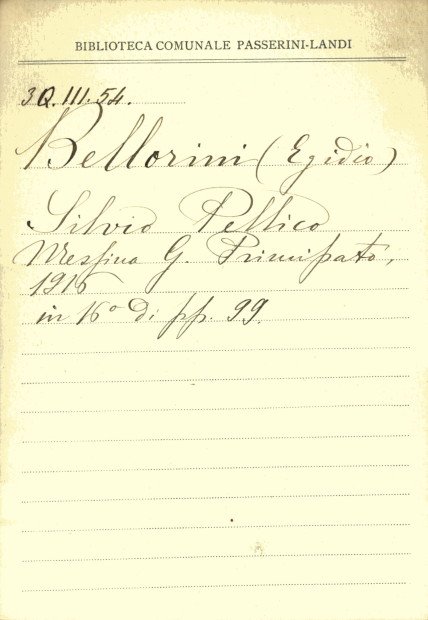 BIBLIOTECA COMUNALE PASSERINI-LANDI
3Q.III.54.
Bellorini (Egidio)
Silvio Pellico
Messina G. Principato,
1916
in 16° di pp. 99.